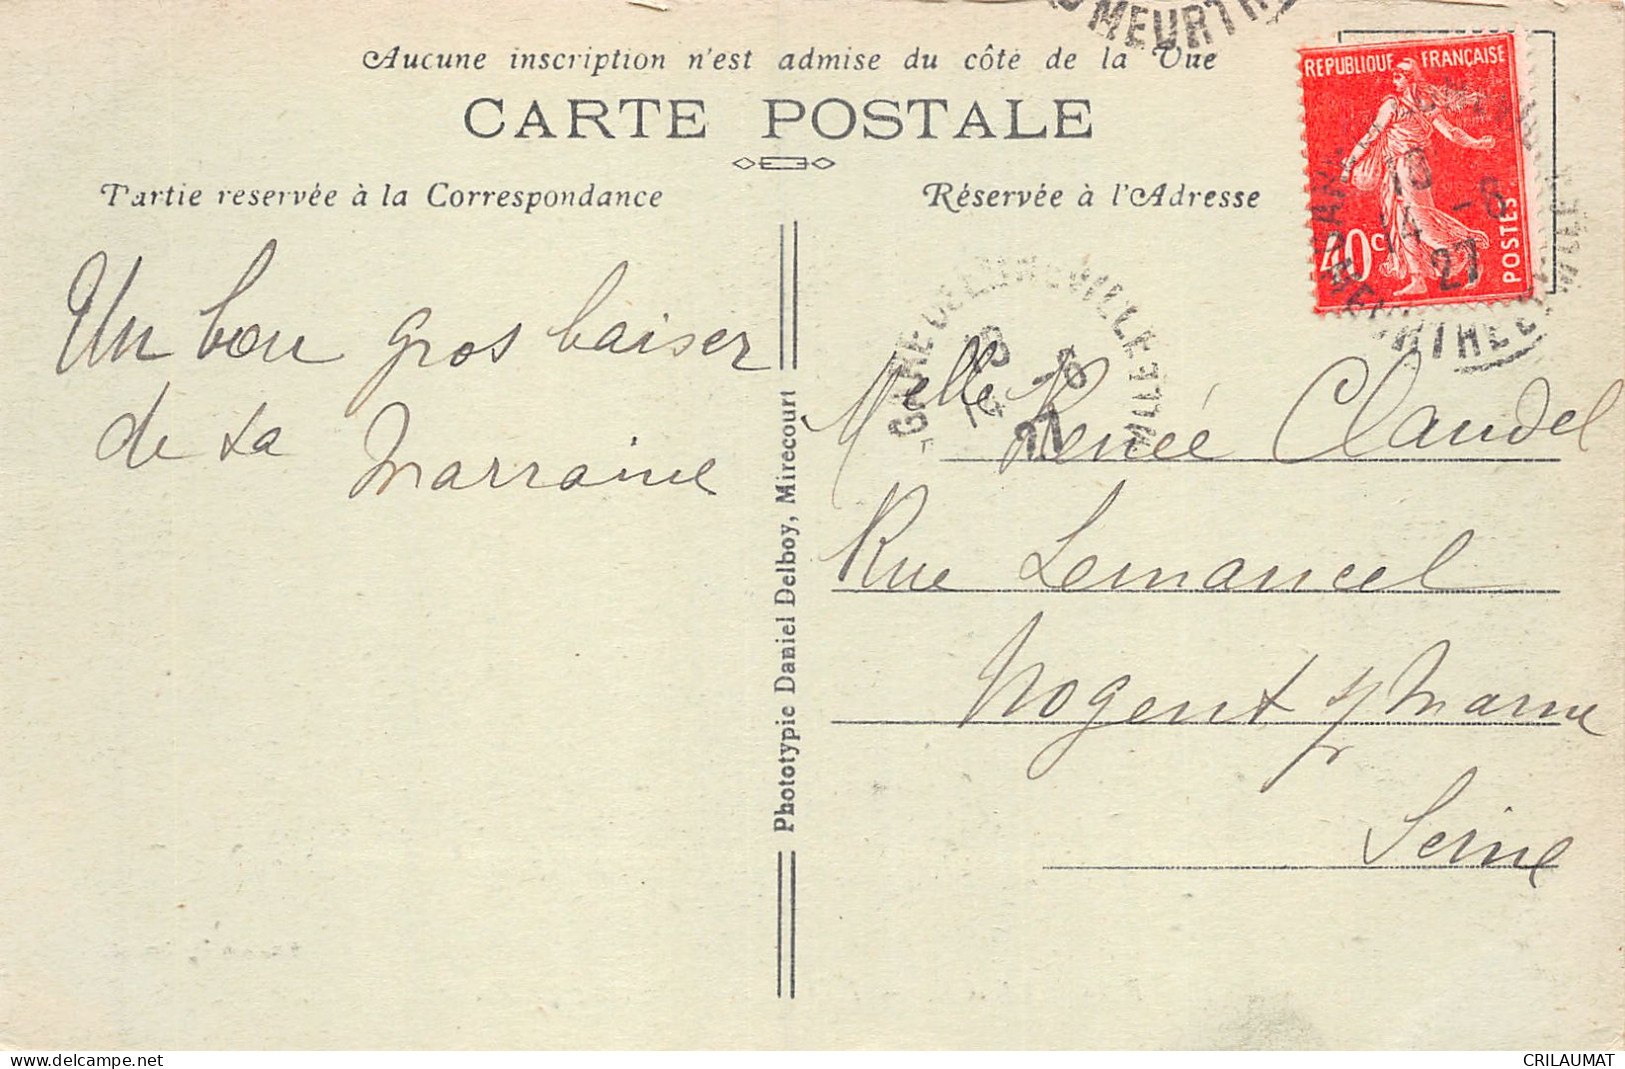 MEURTHE
Aucune inscription n'est admise du côté de la Vue
CARTE POSTALE
Partie reservée à la Correspondance
Réservée à l'Adresse
REPUBLIQUE FRANÇAISE
40c
POSTES
14 -8
27
Un bon gros baiser
de ta Marraine
Phototypie Daniel Delboy, Mirecourt
GARE DE LUNEVILLE
14 -8
27
Melle Renée Claudel
Rue Lemancel
Nogent s/ Marne
Seine
delcampe.net
CRILAUMAT